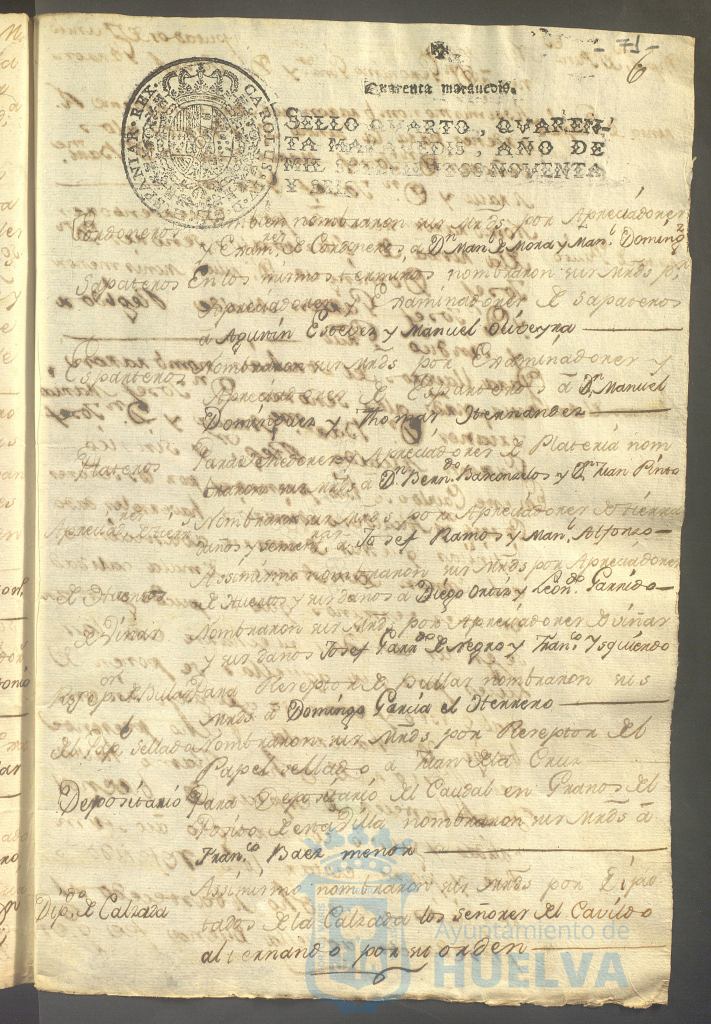 - 71 -
6
Quarenta marauedis.
HISPANIAR. REX. CAROLUS
SELLO QVARTO, QVAREN-
TA MARAVEDIS, AÑO DE
MIL SETECIENTOS NOVENTA
Y SEIS.
Cordoneros
nombraron sus Mrds por Apreciadores
y Exam.res de Cordoneros, a Dn Man.l de Mora y Man.l Doming.z
Sapateros
En los mismos terminos nombraron sus Mrds pr
Apreciadores y Examinadores de Sapateros
a Agustin Estevez y Manuel Oliveyra
Esparteros
Nombraron sus Mrds por Examinadores y
Apreciadores de Esparteros a Dn Manuel
Dominguez y Thomas Hernandez
Plateros
Para Apreciadores de Plateria nom
braron sus Mrds a Dn Bern.do Barconelos y Dn Juan Pinto
Nombraron sus Mrds por Apreciadores de tierra
daños y semen a Josef Ramos y Man.l Alfonzo
Assimismo nombraron sus Mrds por Apreciadores
de Huertos
de Huertos y sus daños a Diego Ortis y Leon.do Garrido
de Viñas
Nombraron sus Mrds por Apreciadores de Viñas
y sus daños Josef Garr.do de Negro y Fran.co Ysquierdo
Recep.or de Bulas
Para Receptor de Bullas nombraron sus
Mrds a Domingo Garcia el Herrero
del Pap.l sellado
Nombraron sus Mrds por Receptor del
Papel sellado a Juan de la Cruz
Depositario
Para Depositario del Caudal en Granos del
Posito de esta Villa nombraron sus Mrds a
Fran.co Baez menor
Assimismo nombraron sus Mrds por Dipu
Dip.do de Calzada
tados de la Calzada los señores del Cavildo
alternando por su orden
Ayuntamiento de
HUELVA